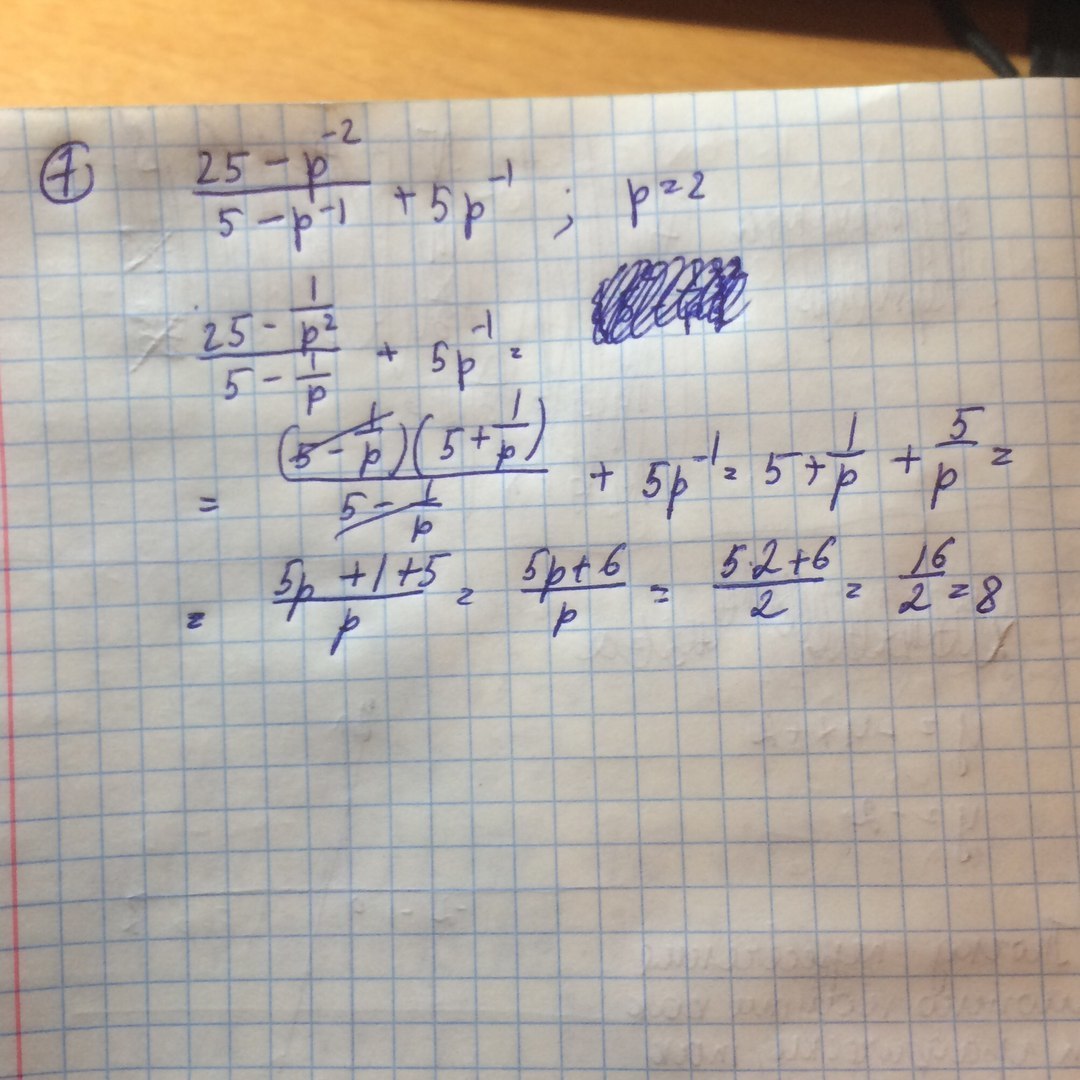 ① (25 - p⁻²)/(5 - p⁻¹) + 5p⁻¹ ; p = 2
(25 - 1/p²)/(5 - 1/p) + 5p⁻¹ =
= ((5 - 1/p)(5 + 1/p))/(5 - 1/p) + 5p⁻¹ = 5 + 1/p + 5/p =
= (5p + 1 + 5)/p = (5p + 6)/p = (5·2 + 6)/2 = 16/2 = 8